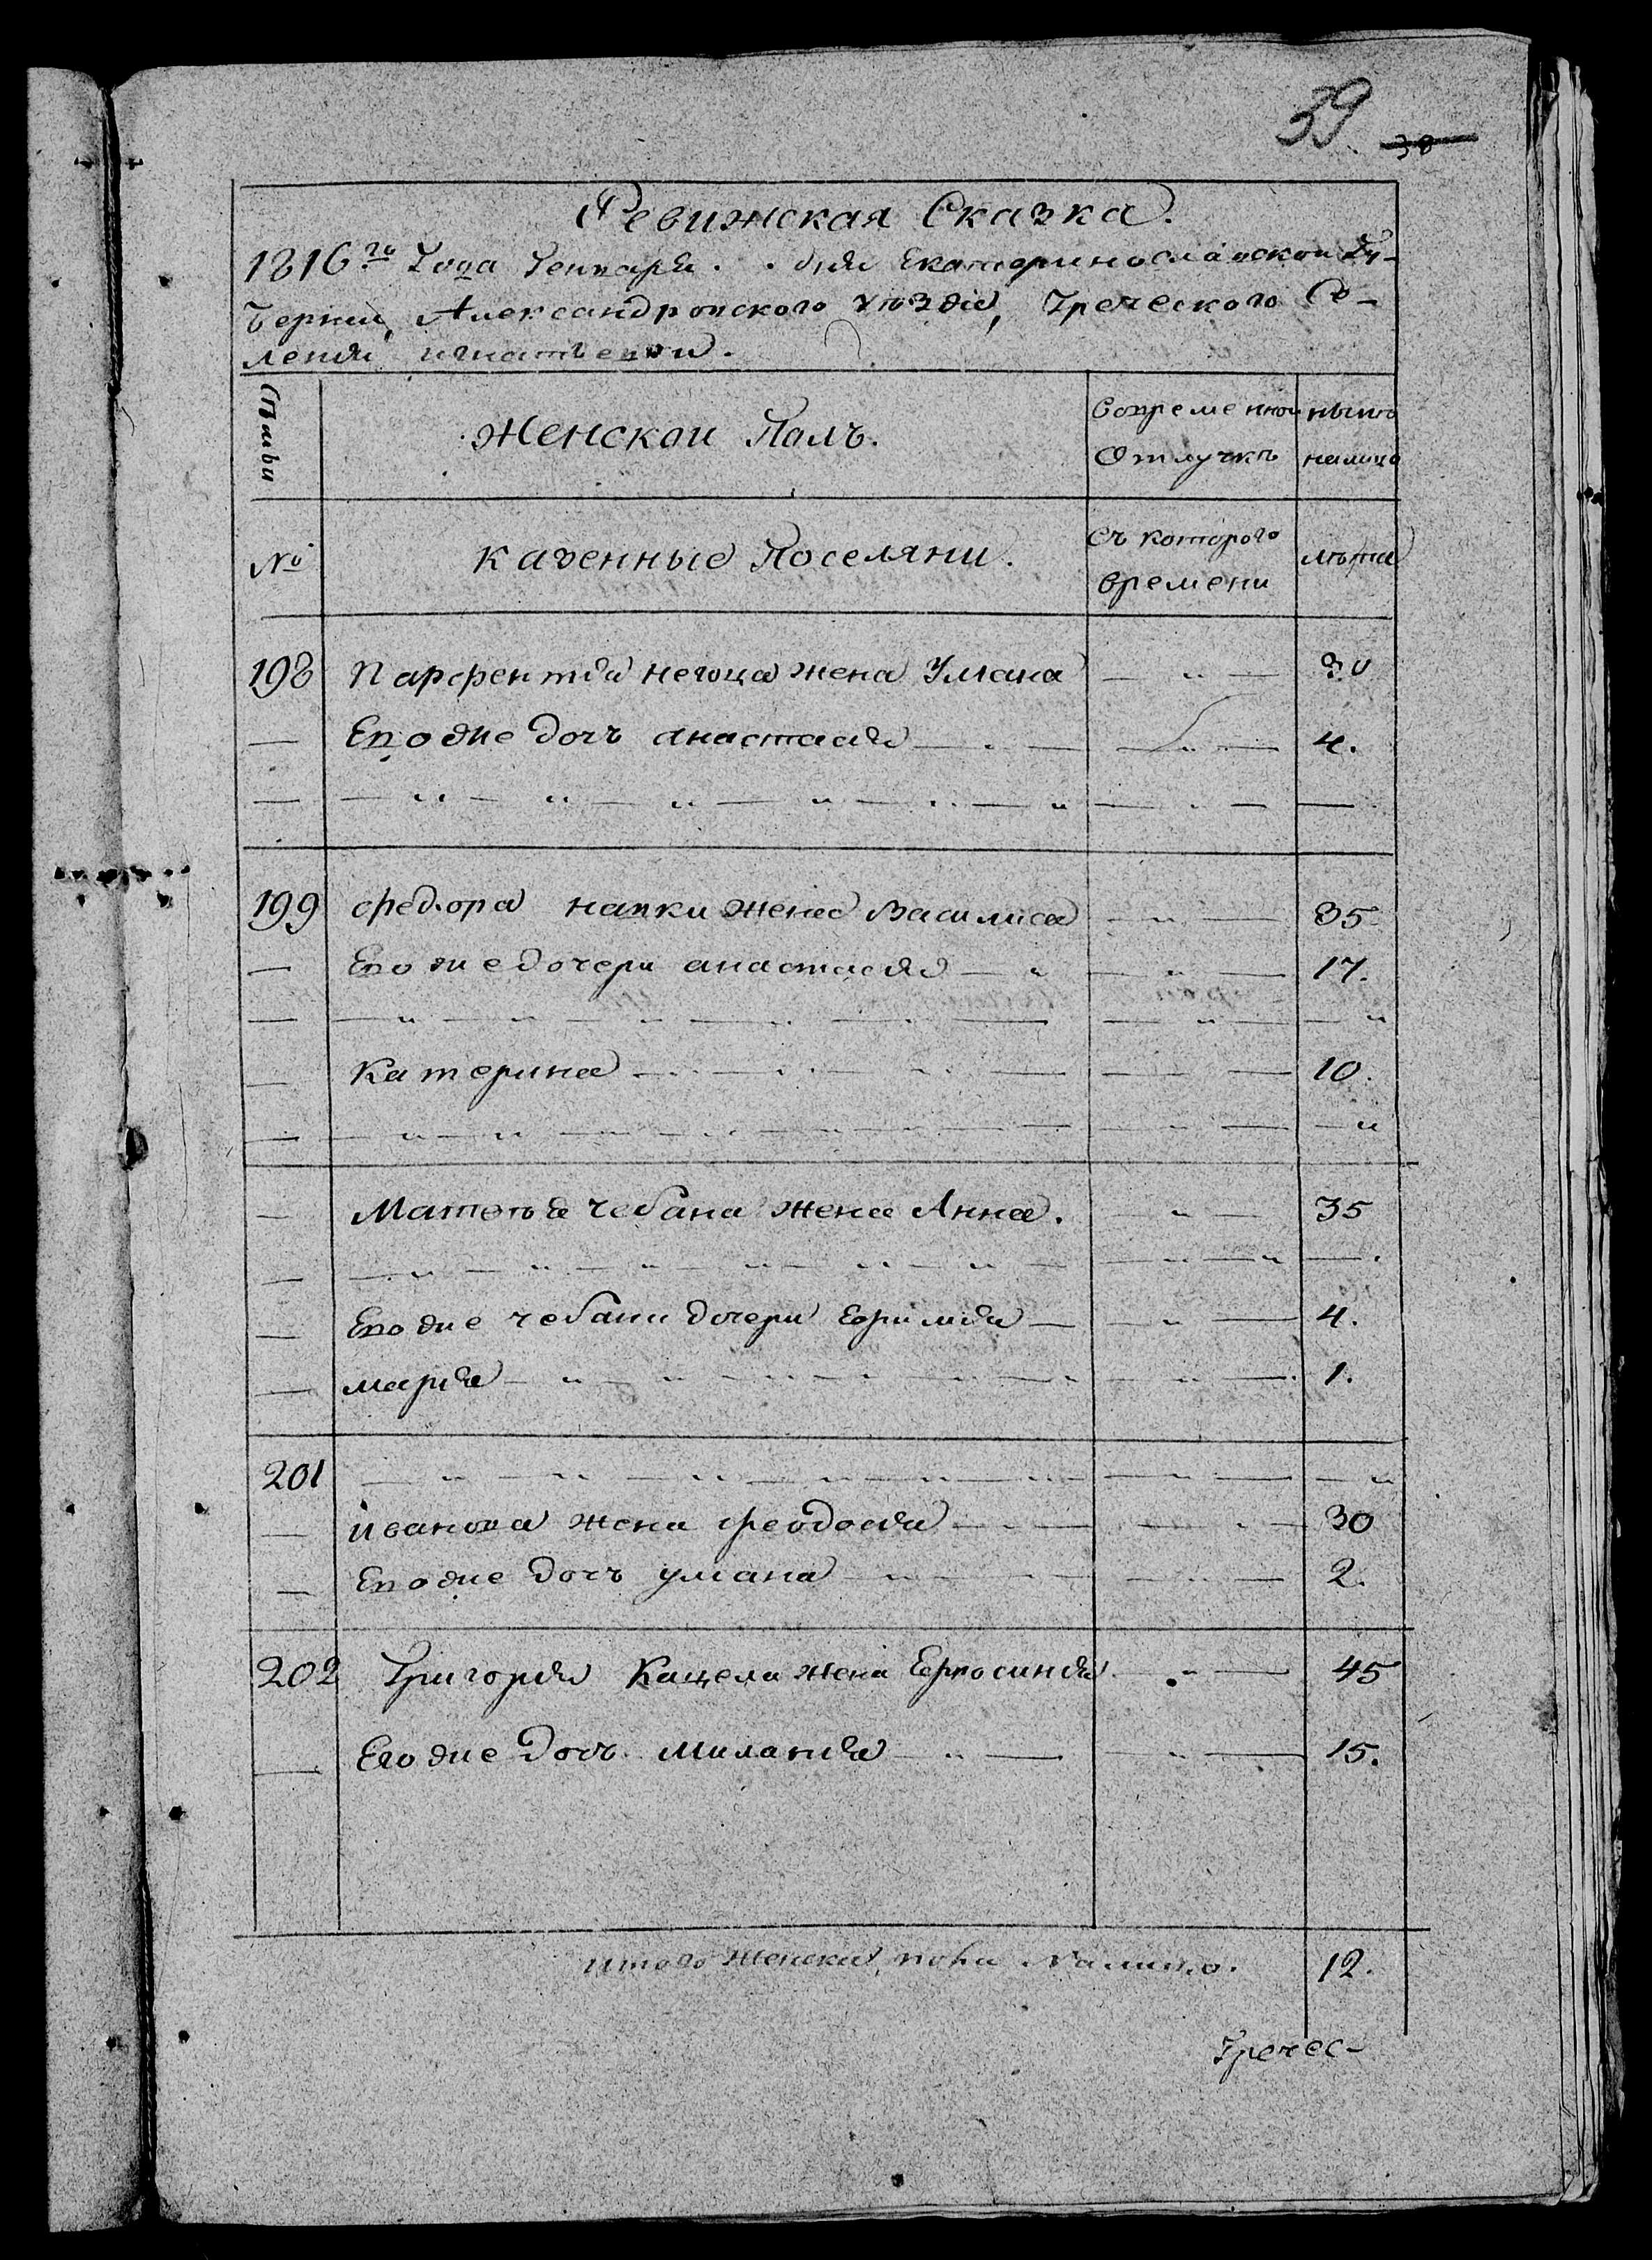 39. 38
Ревижская Сказка.
1816го Года Генваря . . дня Екатеринославской Гу-
бернии, Александровского уѣзда, Греческого Се-
ления игнатевки.
Семьи
Женской Полъ.
Вовременной
Отлучкѣ
нынѣ
налицо
№
казенные Поселяни.
Съ которого
времени
лѣта
198 Парфентия негоца жена Улиана — " — 30
— Евоже дочь анастасия — " — 4.
199 федора напки жена Василиса — " — 35
— Евоже дочери анастасия — " — 17.
— Катерина — " — 10.
— Матвѣя чебана жена Анна. " — 35
— Евоже чебани дочери Ефимия — " — 4.
— мария — " — 1.
201 — " —
— иванова жена феодосия — " — 30
— Евоже дочь улиана — " — 2.
202 Григория Кацела жена Ефросиния . " — 45
— Егоже дочь Милания — " — 15.
итого женска пола Налицо. 12.
Гречес-